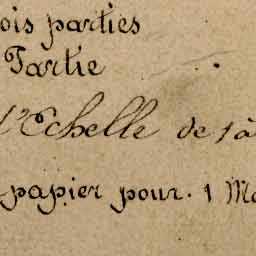 ois parties
Partie
l'Echelle de 1 à
papier pour. 1 Mè